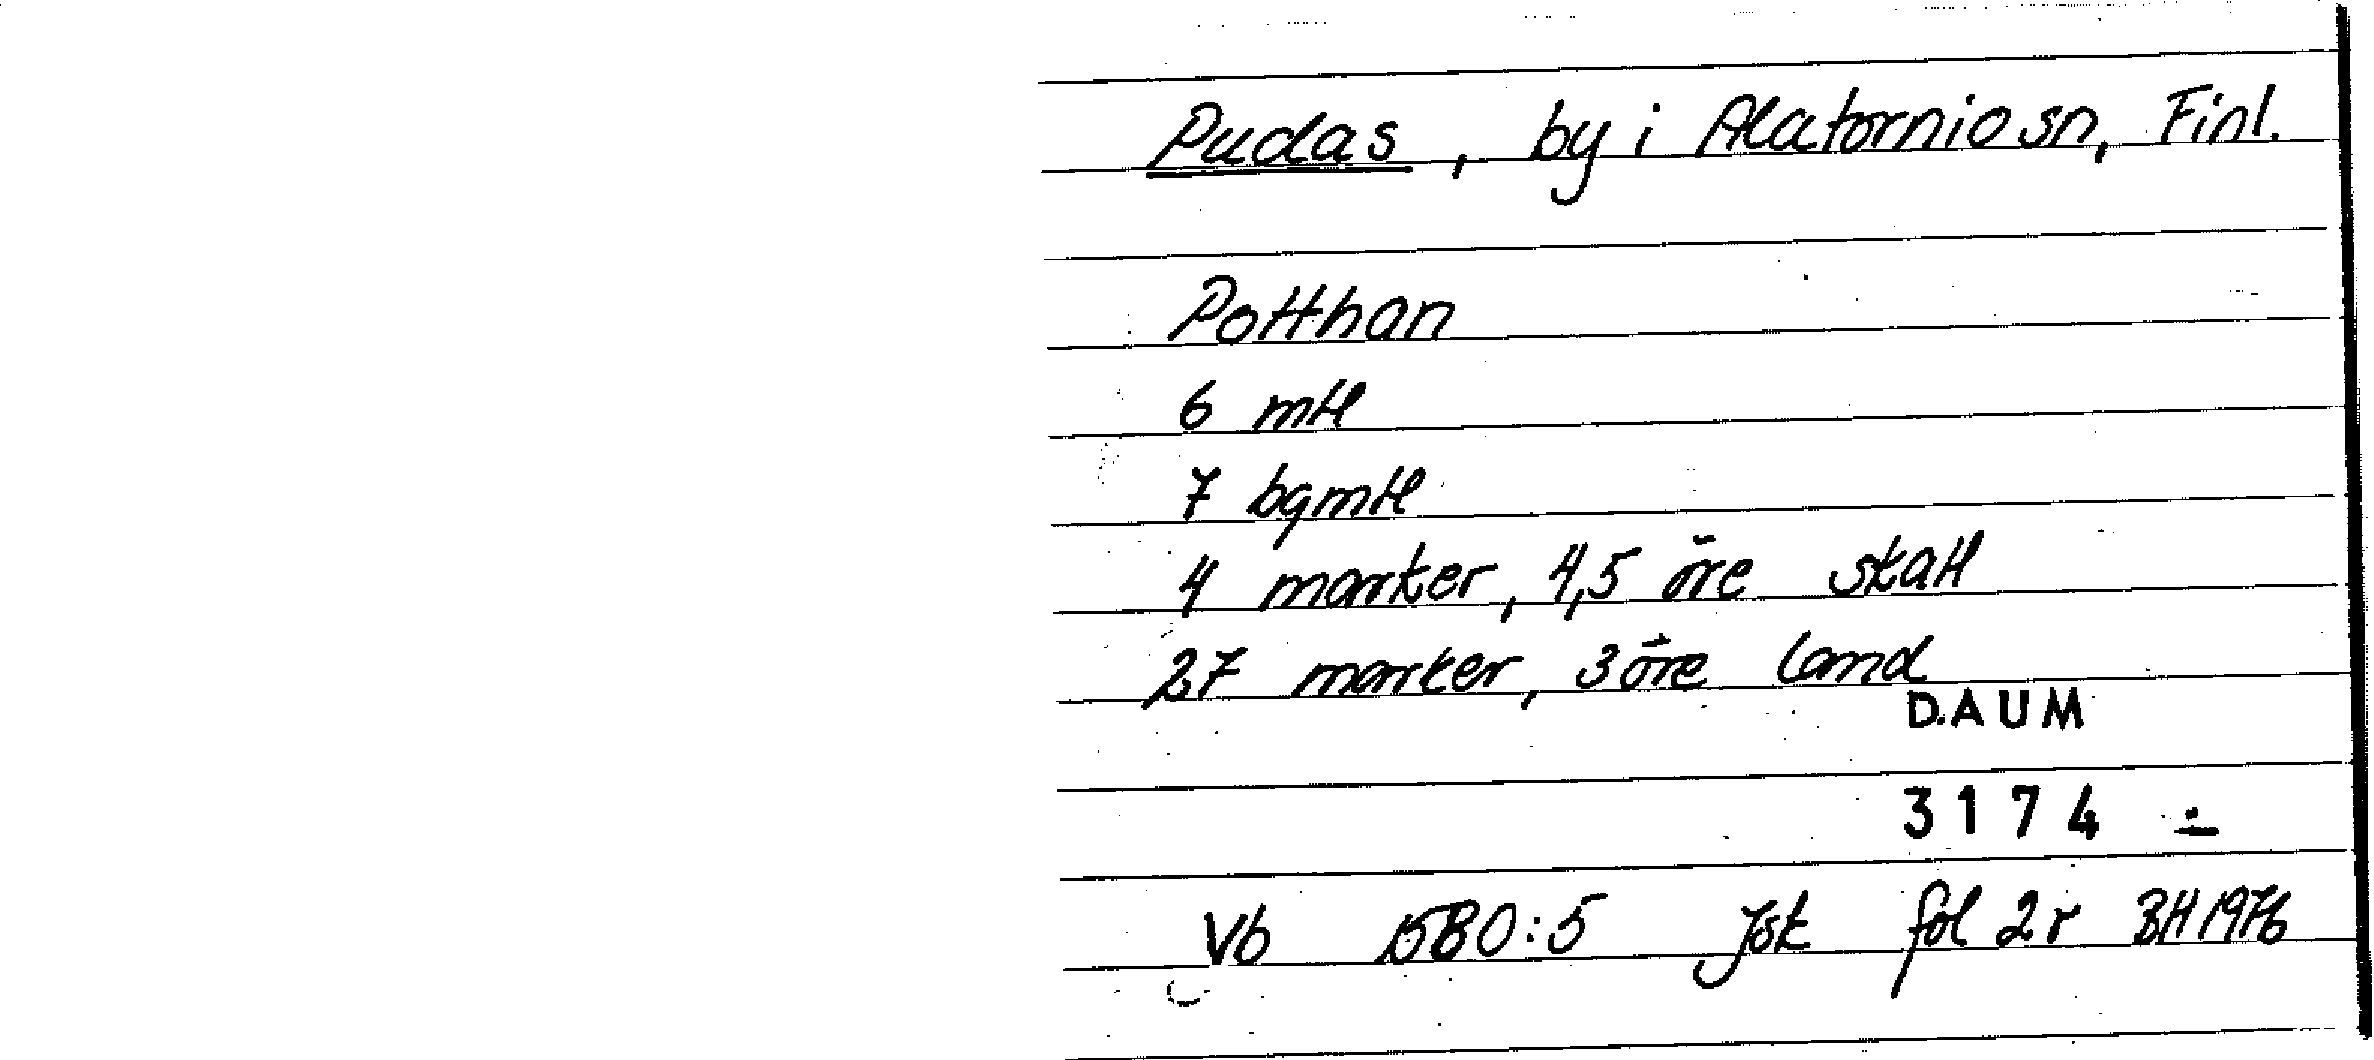 Pudas, by i Alatornio sn, Finl.
Potthan
6 mtl
7 bgmtl
4 marker, 4,5 öre skatt
27 marker, 3 öre land
D.A U M
3 1 7 4
Vb 1580:5 Jsk fol 2r BH 1976